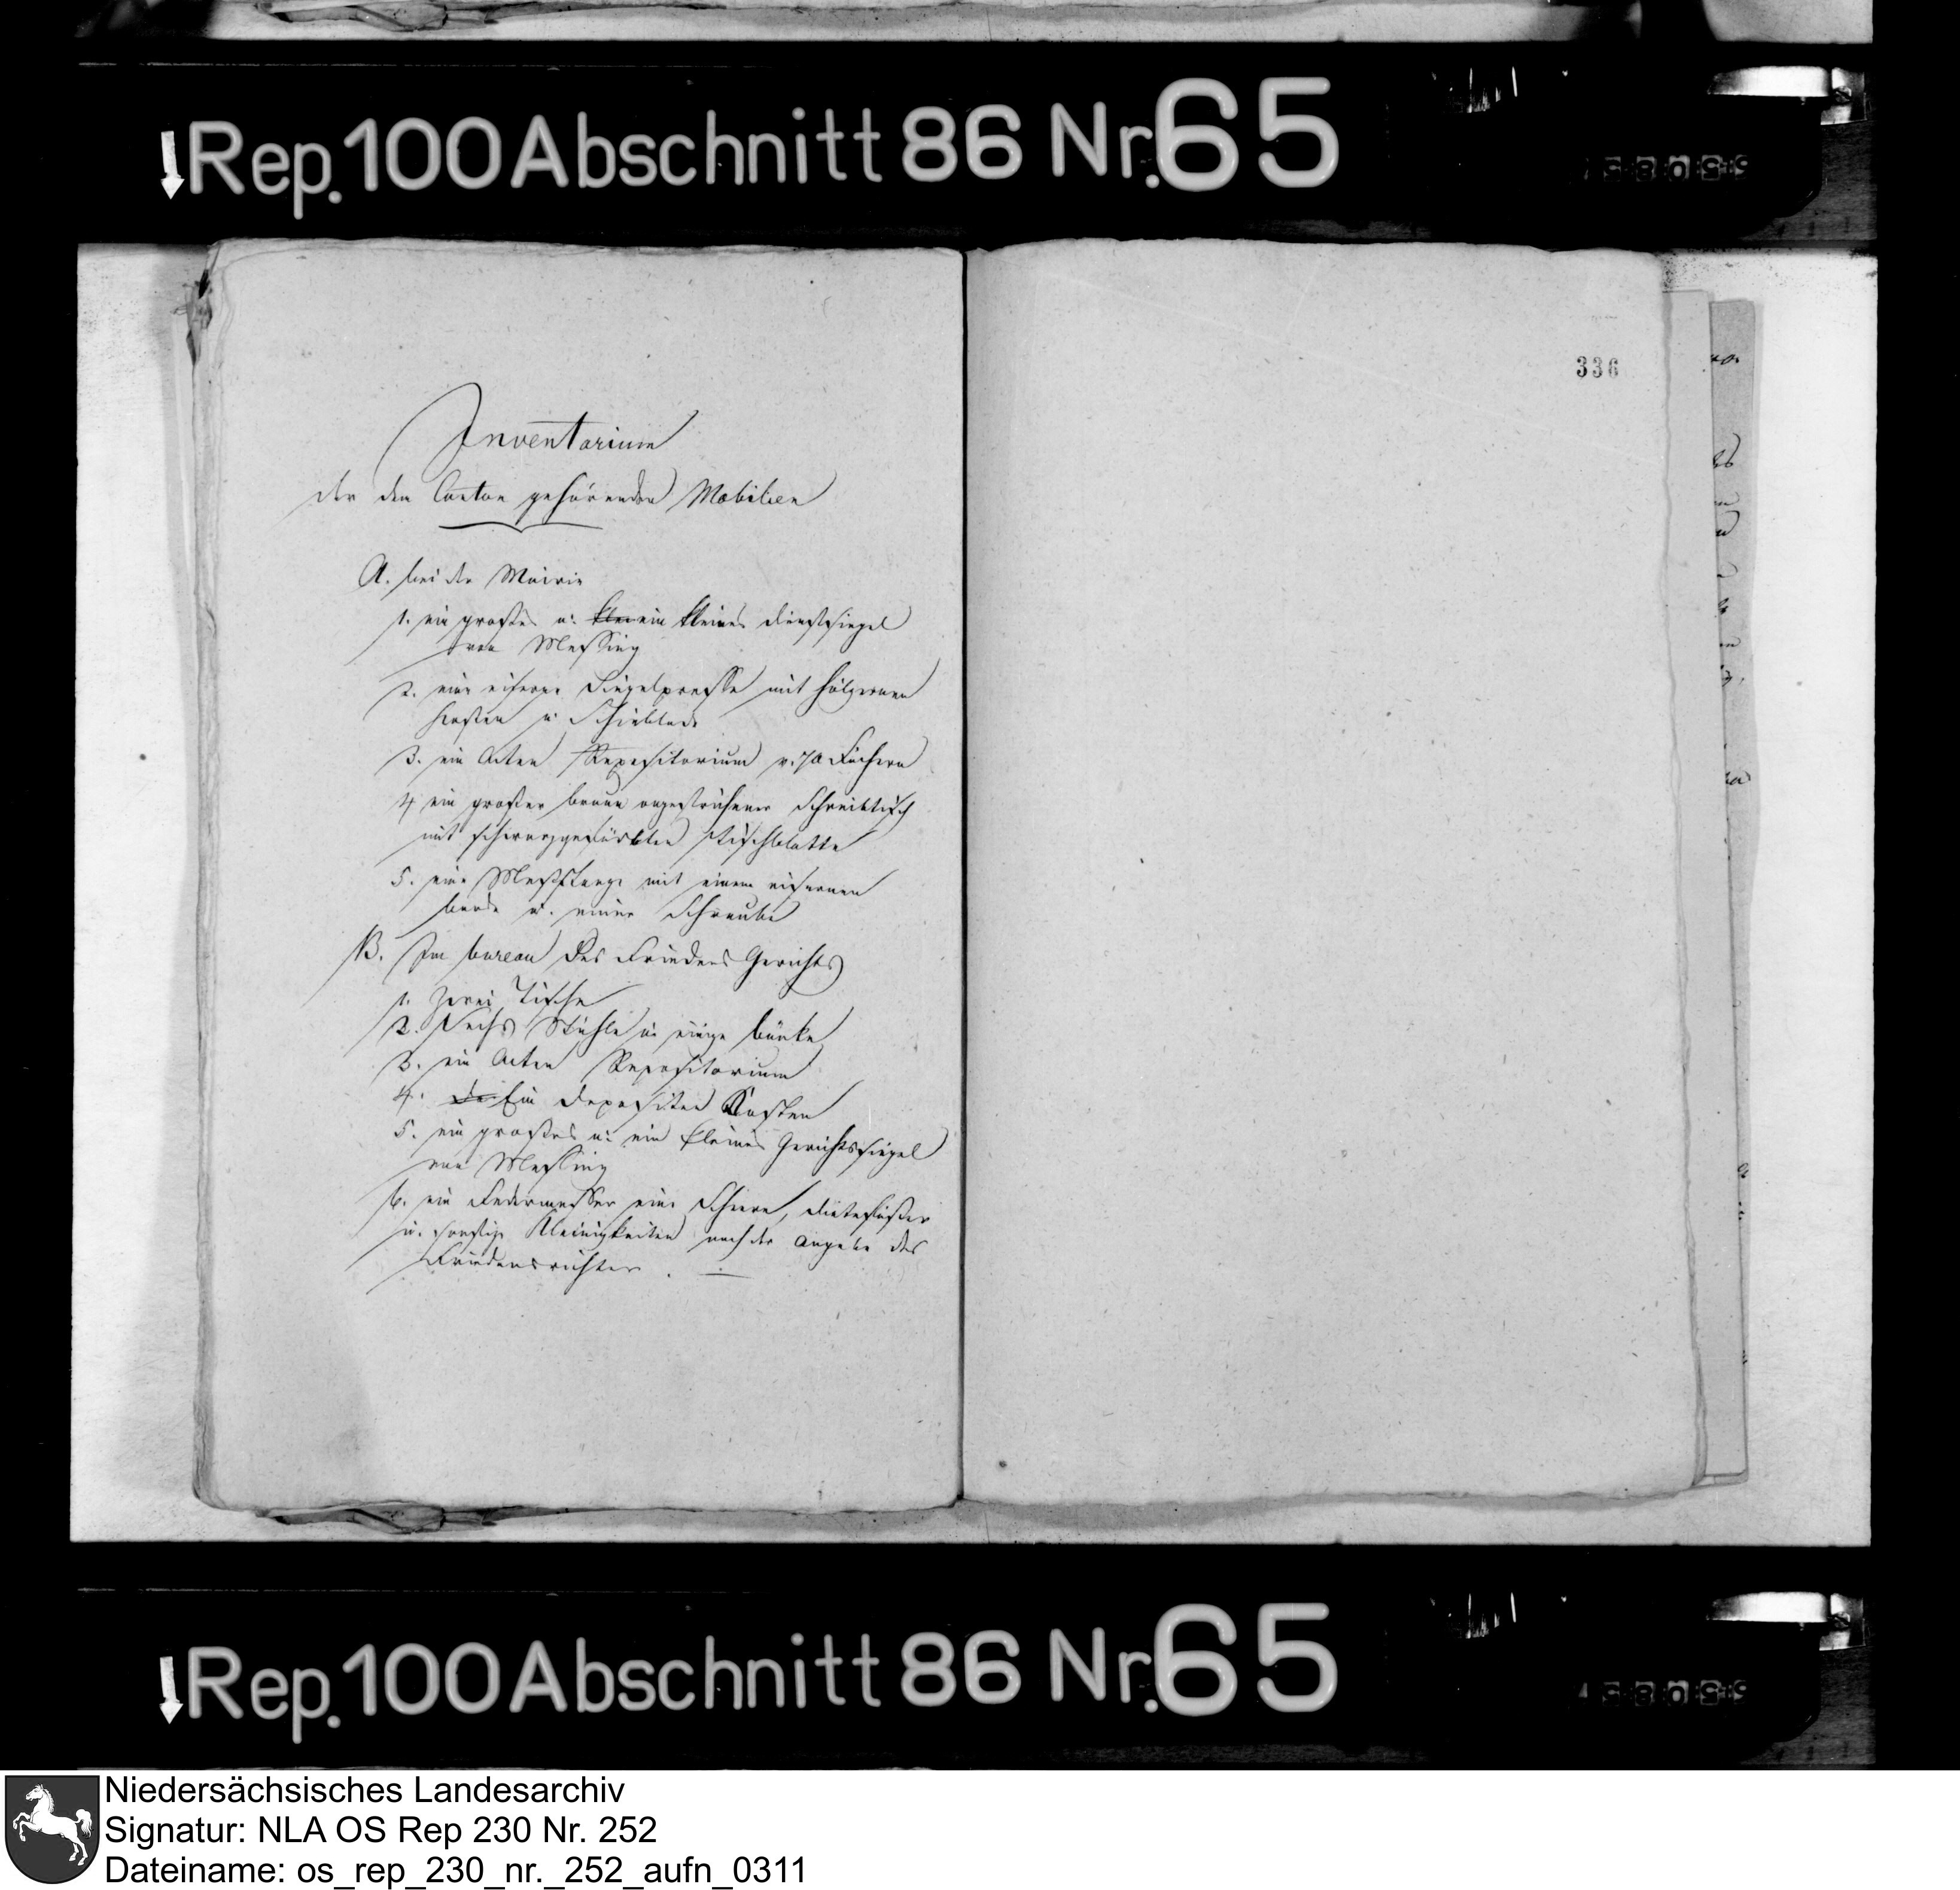 Rep. 100 Abschnitt 86 Nr. 65
336
Inventarium
der den Canton gehörenden Mobilien
A. bei der Mairie
1. ein großes u. klei ein kleines Dienstsiegel
von Messing
2. eine eiserne Siegelpresse mit hölzernen
Kasten u. Schieblade
3. ein Acten Repositorium v. 70 Fächern
4 ein großer braun angestrichener Schreibtisch
mit schwarzgefärbten Tischblatte
5. eine Meßstange mit einem eisernen
bande u. einer Schraube
B. Im bureau des Friedens Gerichts
1. Zwei Tische
2. Sechs Stühle u. einige bänke
3. ein Acten Repositorium
4. Ein Depositen Kasten
5. ein großes u. ein kleines Gerichtssiegel
von Messing
6. ein Federmesser eine Scheere, Dintefäßer
u. sonstige Kleinigkeiten nach der Angabe des
Friedensrichters.
Rep. 100 Abschnitt 86 Nr. 65
Niedersächsisches Landesarchiv
Signatur: NLA OS Rep 230 Nr. 252
Dateiname: os_rep_230_nr._252_aufn_0311